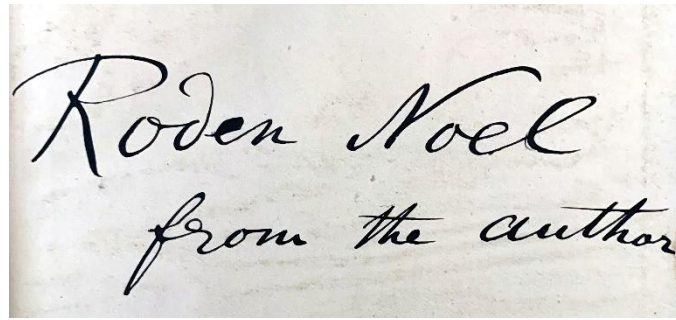 Roden Noel
from the author